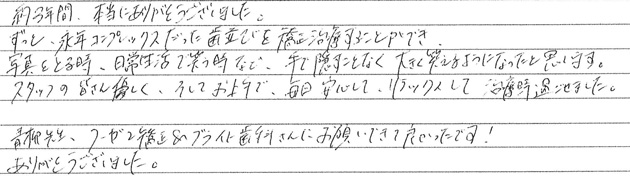 約3年間、本当にありがとうございました。
ずっと、永年コンプレックスだった歯並びを矯正治療することができ、
写真をとる時、日常生活で笑う時など、手で隠すことなく大きく笑えるようになったと思います。
スタッフの皆さん優しく、そしてお上手で、毎回安心して、リラックスして治療時過ごせました。
青柳先生、フーガ矯正&ブライト歯科さんにお願いできて良かったです!
ありがとうございました。